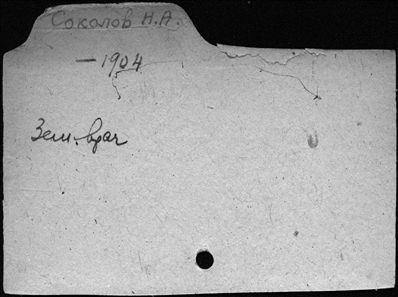 Соколов Н.А.
— 1904
Зем. врач